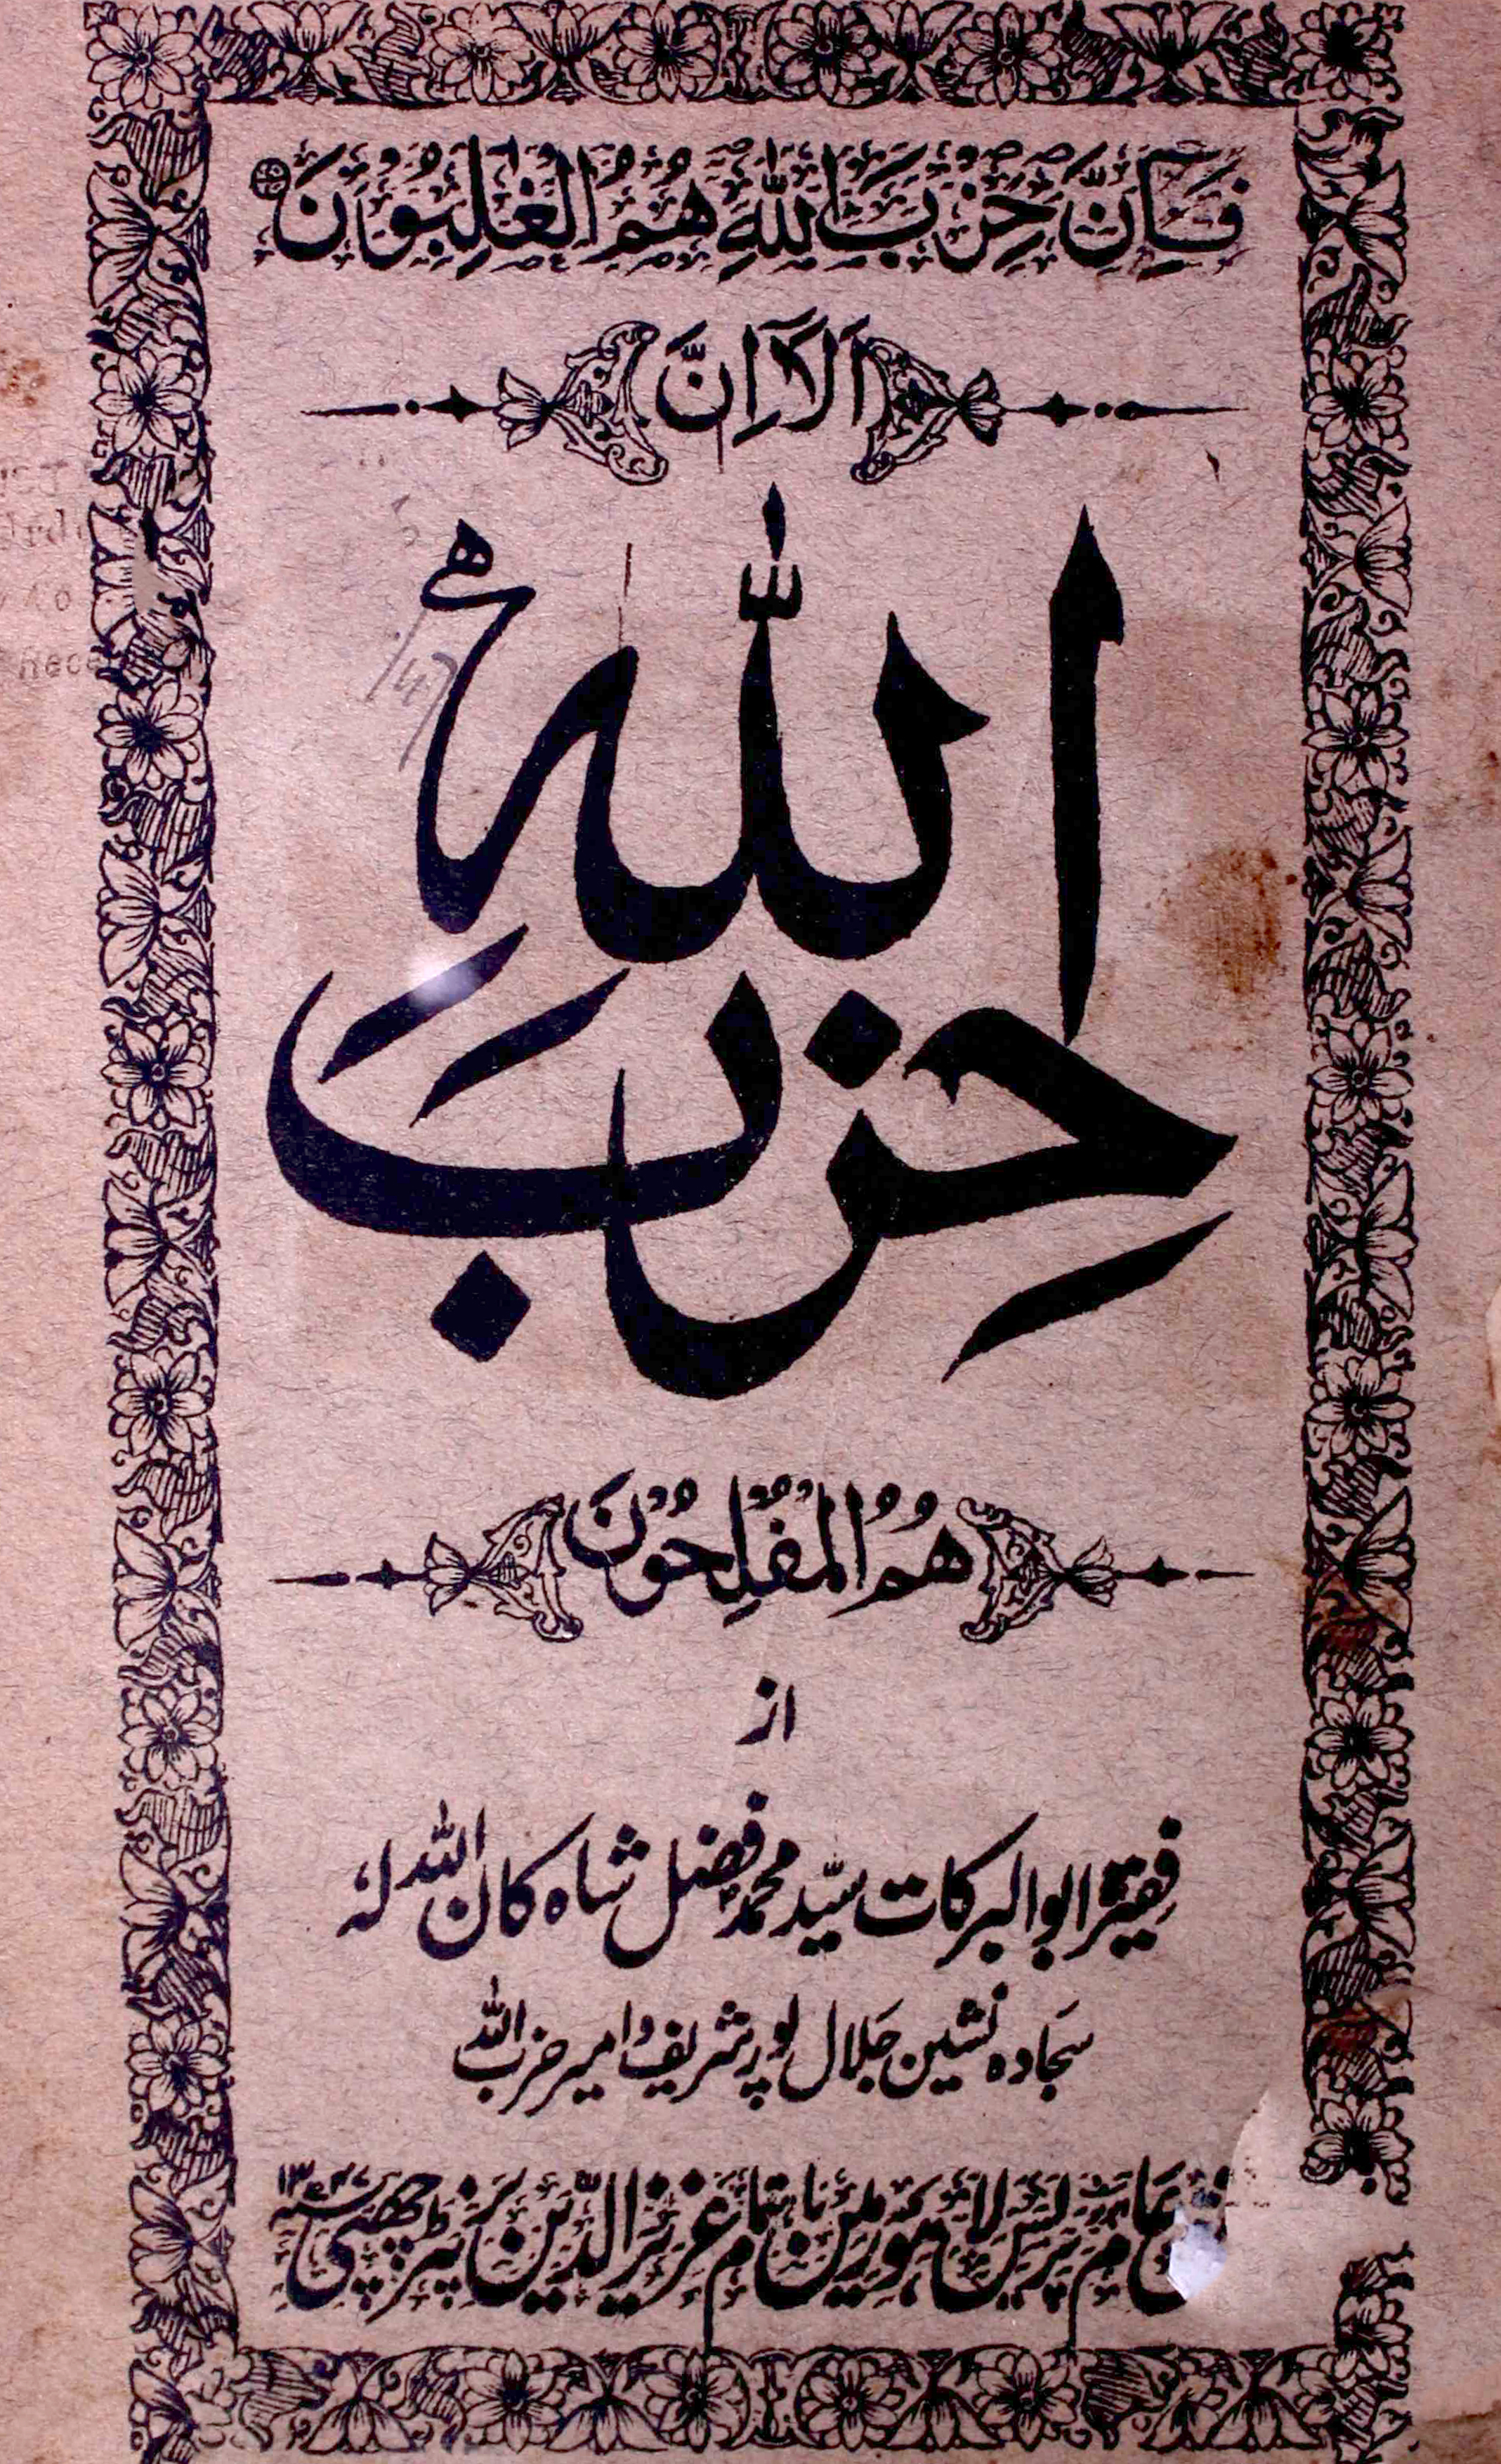 فَاِنَّ حِزْبَ اللّٰهِ هُمُ الْغٰلِبُوْنَ
اَلَاۤ اِنَّ
حِزْبَ اللّٰهِ
هُمُ الْمُفْلِحُوْنَ
از
فقیر ابوالبرکات سیّد محمد فضل شاہ کان اللہ لہٗ
سجادہ نشین جلال پور شریف و امیر حزب اللہ
عام پریس لاہور میں باہتمام عزیز الدین پرنٹر چھپی